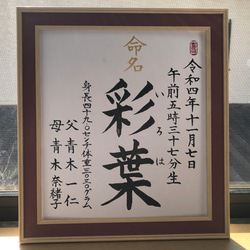 令和四年十一月七日
午前五時三十七分生
命名
彩葉
いろは
身長四十九・〇センチ 体重三〇二〇グラム
父 青木一仁
母 青木奈緒子